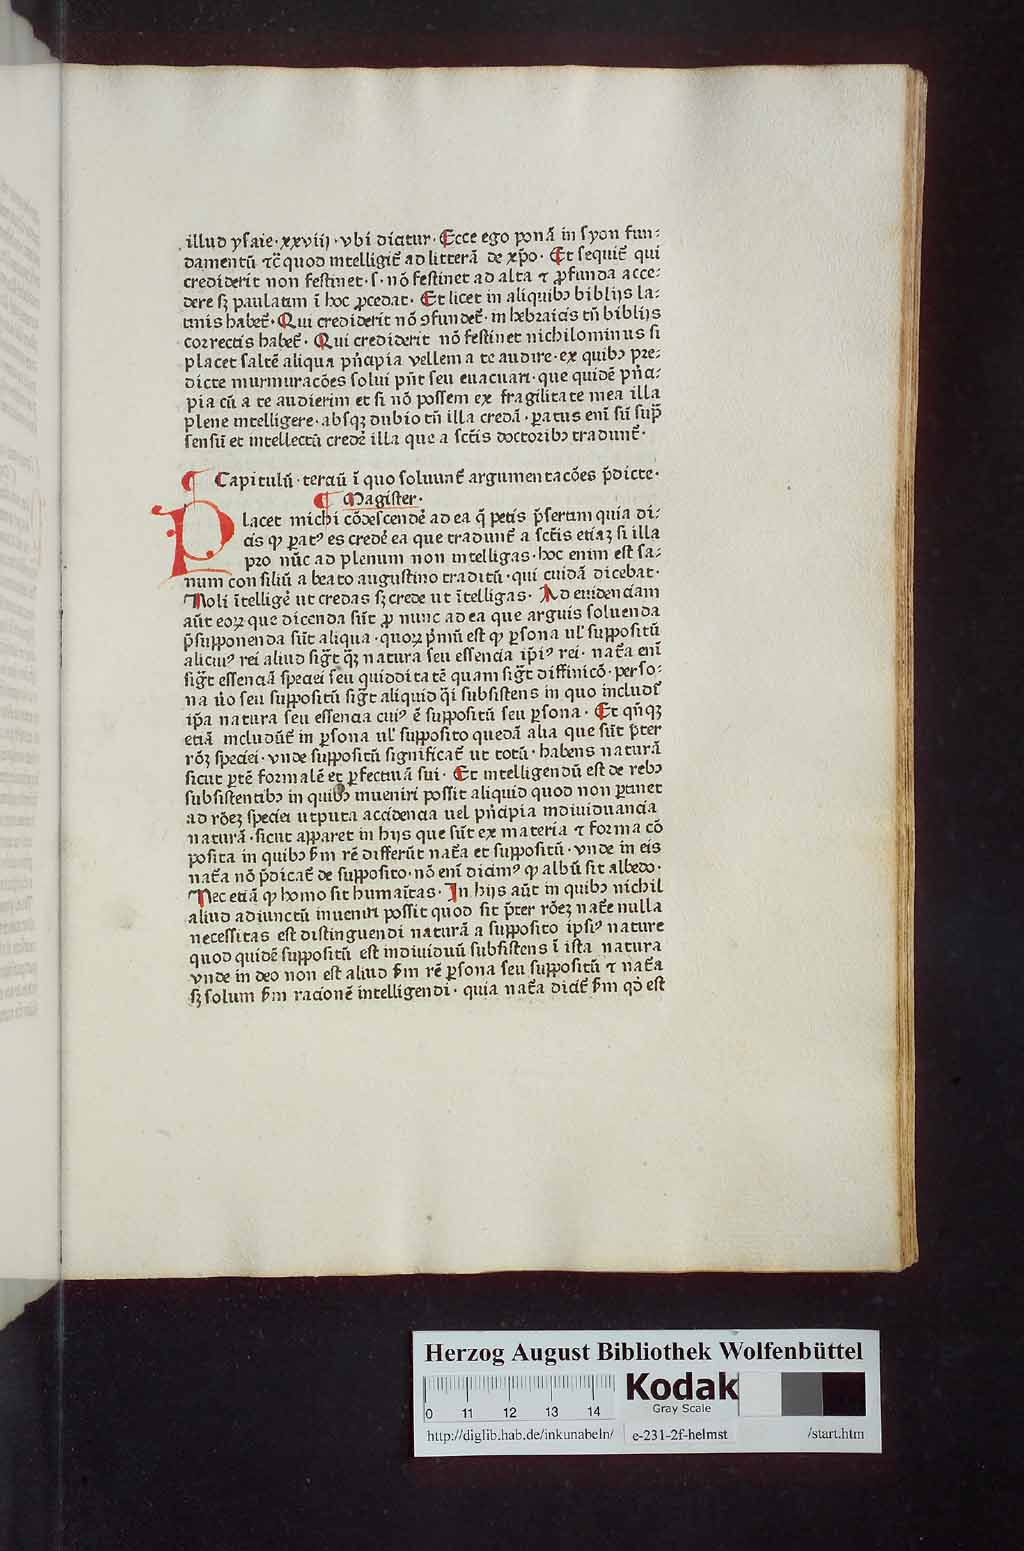 illud ysaie· xxviij ·vbi dicitur· Ecce ego ponā in syon fun⸗
damentū ⁊c̄ quod intelligit᷑ ad litterā de xp̄o· Et sequit᷑ qui
crediderit non festinet· s· nō festinet ad alta ⁊ ꝓfunda acce⸗
dere sꝫ paulatim ī hoc ꝓcedat· Et licet in aliquibꝰ biblijs la⸗
tinis habet᷑· Qui crediderit nō ꝯfundet᷑· in hebraicis tn̄ biblijs
correctis habet᷑· Qui crediderit nō festinet nichilominus si
placet saltē aliqua pn̄cipia vellem a te audire· ex quibꝰ pre⸗
dicte murmuracōes solui pn̄t seu euacuari· que quidē pn̄ci⸗
pia cū a te audierim et si nō possem ex fragilitate mea illa
plene intelligere· absqꝫ dubio tn̄ illa credā· ꝑatus eni͂ su͂ sup̄
sensū et intellectū crede᷑ illa que a sc̄tis doctoribꝰ tradunt᷑·
Capitulū· terciū ī quo soluunt᷑ argumentacōes p̄dicte·
Magister·
Placet michi cōdescende᷑ ad ea q̄ petis p̄sertim quia di⸗
cis ꝙ ꝑatꝰ es crede᷑ ea que tradunt᷑ a sc̄tis etiaꝫ si illa
pro nūc ad plenum non intelligas· hoc enim est sa⸗
num consiliū a beato augustino traditū· qui cuidā dicebat·
Noli ītellige᷑ ut credas sꝫ crede ut ītelligas· Ad euidenciam
aūt eoꝝ que dicenda sūt ꝓ nunc ad ea que arguis soluenda
p̄supponenda sūt aliqua· quoꝝ p͛mū est ꝙ ꝑsona ul᷑ suppositū
alicuiꝰ rei aliud sig̅t qꝫ̄ natura seu essencia ip̄iꝰ rei· nat᷑a eni͂
sig̅t essenciā speciei seu quidditatē quam sig̅t diffinicō· perso⸗
na u͛o seu suppositū sig̅t aliquid q̄i subsistens in quo includit᷑
ip̄a natura seu essencia cuiꝰ ē suppositū seu ꝑsona· Et qn̄qꝫ
etiā includūt᷑ in ꝑsona ul᷑ supposito quedā alia que sūt p̄ter
rōꝫ speciei· vnde suppositū significat᷑ ut totū· habens naturā
sicut ꝑtē formalē et ꝑfectiuā sui· Et intelligendū est de rebꝰ
subsistentibꝰ in quibꝰ inueniri possit aliquid quod non ꝑtinet
ad rōeꝫ speciei utputa accidencia uel pn̄cipia indiuiduancia
naturā· sicut apparet in hijs que sūt ex materia ⁊ forma cō
posita in quibꝰ ẜm rē differūt nat᷑a et suppositū· vnde in eis
nat᷑a nō p̄dicat᷑ de supposito· nō eni͂ dicimꝰ ꝙ albū sit albedo·
Nec etiā ꝙ homo sit humaītas· In hijs aūt in quibꝰ nichil
aliud adiunctū inueniri possit quod sit p̄ter rōeꝫ nat᷑e nulla
necessitas est distinguendi naturā a supposito ipsiꝰ nature
quod quidē suppositū est indiuiduū subsistens ī ista natura
vnde in deo non est aliud ẜm rē ꝑsona seu suppositū ⁊ nat᷑a
sꝫ solum ẜm racionē intelligendi· quia nat᷑a dicit᷑ ẜm qd̄ est
Herzog August Bibliothek Wolfenbüttel
0 11 12 13 14
Kodak
Gray Scale
http://diglib.hab.de/inkunabeln/ e-231-2f-helmst /start.htm